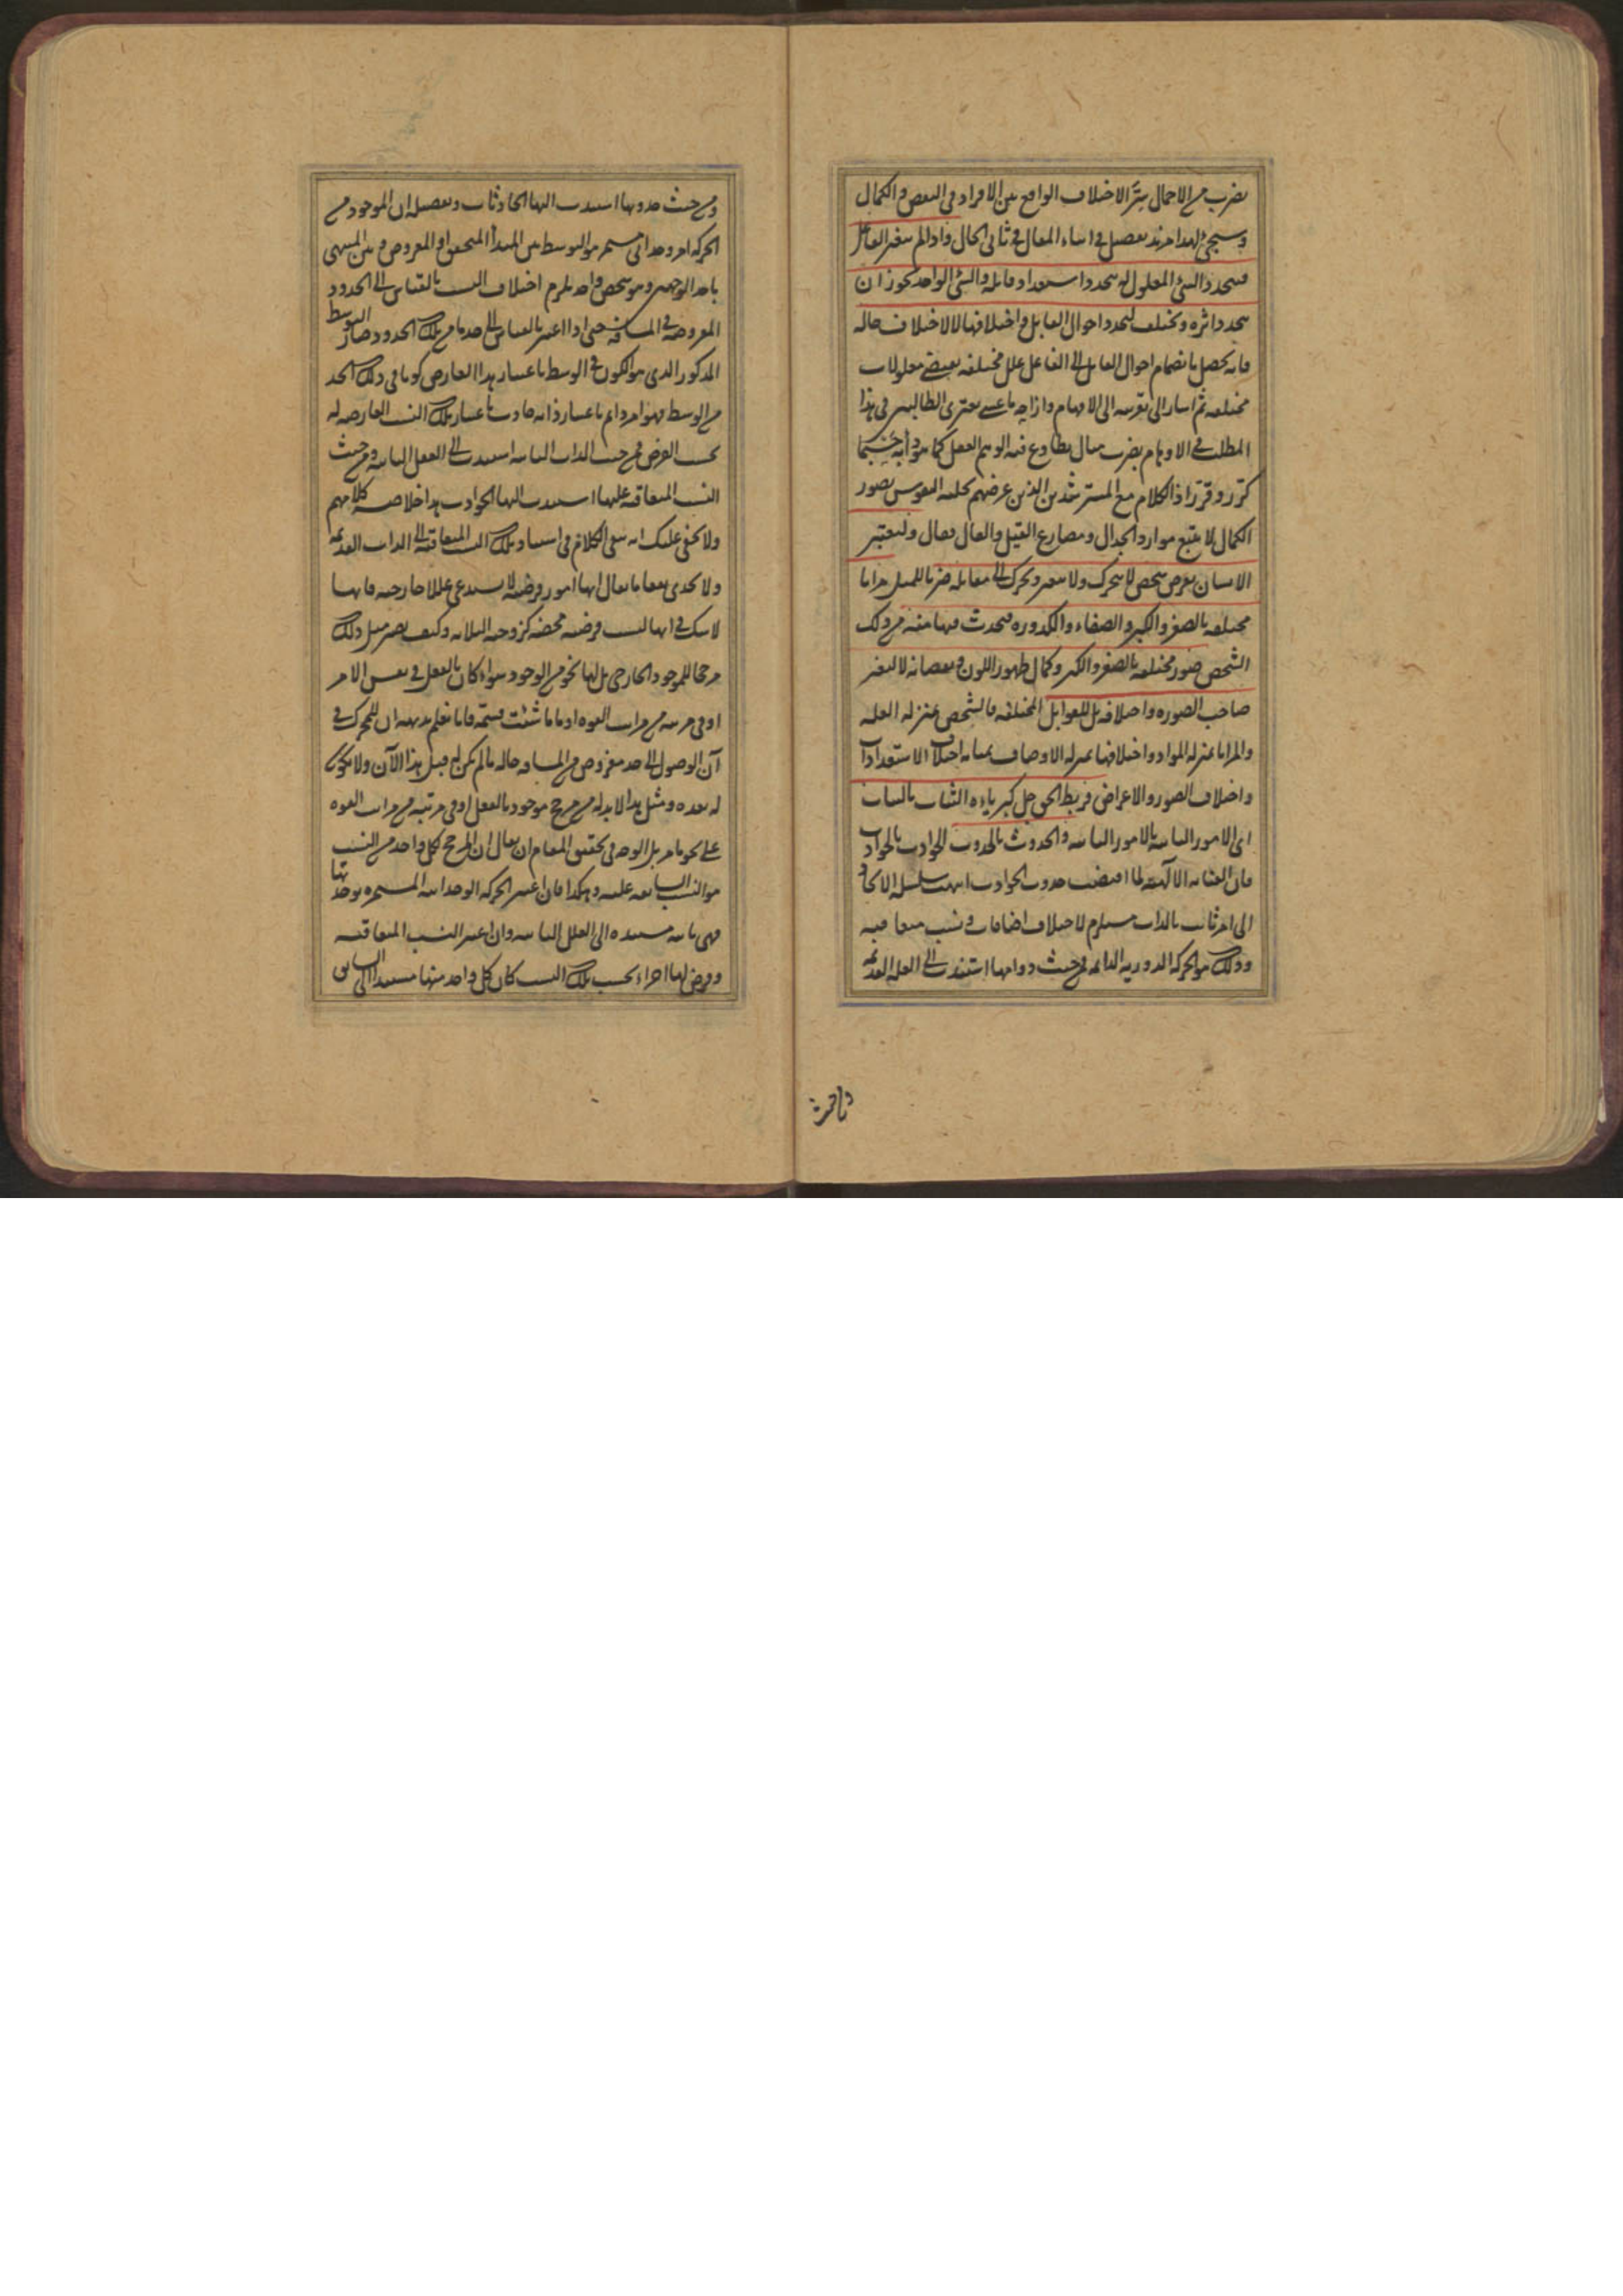 بضرب من الاجمال سرّ الاختلاف الواقع بين الافراد في النقص والكمال
وسيجئ لهذا مزيد تفصيل في اثناء المقال في ثاني الحال واذا لم يتغير الفاعل
فيتجدد الشئ المعلول له بتجدد استعداد قابله والشئ الواحد يجوز ان
يتجدد اثره ويختلف لتجدد احوال القابل واختلافها لا لاختلاف حاله
فانه يحصل بانضمام احوال القابل الى الفاعل علل مختلفه يقتضي معلولات
مختلفه ثم اشار الى تقريبه الى الافهام وازاحه ما عسى يعتري الطالبين في هذا
المطلب من الاوهام بضرب مثال يطاوع فيه الوهم العقل كما هو دأبه حيثما
كرّر وقرّر اذ الكلام مع المسترشدين الذين غرضهم تحليه النفوس بصور
الكمال لا يتبع موارد الجدال ومصارع القيل والقال فقال وليعتبر
الانسان بفرض شخص لا يتحرك ولا يتغير وتحرك الى مقابله ضربا للمثل مرايا
مختلفه بالصغر والكبر والصفاء والكدوره فيحدث فيها منه من ذلك
الشخص صور مختلفه بالصغر والكبر وكمال ظهور اللون ونقصانه لا لتغير
صاحب الصوره واختلافه بل للقوابل المختلفه فالشخص بمنزله العله
والمرايا بمنزله المواد واختلافها بمنزله الاوصاف بمثابه اختلاف الاستعدادات
واختلاف الصور والاعراض فربط الحق جل كبرياءه الثبات بالثبات
اى الامور الثابته بالامور الثابته والحدوث بالحدوث الحوادث بالحوادث
فان العنايه الالهيه لما اقتضت حدوث الحوادث انتهت سلسله الايجاد
الى امر ثابت بالذات مستلزم لاختلاف اضافات ونسب متعاقبه
وذلك هو الحركه الدوريه الدائمه فمن حيث دوامها استندت الى العله القديمه
ومن حيث
ومن حيث حدوثها استندت اليها الحادثات وتفصيله ان الموجود من
الحركه امر وحداني مستمر هو التوسط بين المبدأ المتحقق او المفروض وبين المنتهى
باحد الوجهين وهو شخص واحد يلزمه اختلاف النسب بالقياس الى الحدود
المفروضه في المسافه حتى اذا اعتبر بالقياس الى حد ما من تلك الحدود صار التوسط
المذكور الذي هو الكون في الوسط باعتبار هذا العارض كونا في ذلك الحد
من الوسط فهو امر دائم باعتبار ذاته حادث باعتبار تلك النسب العارضه له
بحسب الفرض فمن حيث الذات الثابته استندت الى العلل الثابته ومن حيث
النسب المتعاقبه عليها استندت اليها الحوادث هذا خلاصه كلامهم
ولا يخفى عليك انه بقي الكلام في استناد تلك النسب المتعاقبه الى الذات القديمه
ولا يجدي نفعا ما يقال انها امور فرضيه لا يستدعي عللا خارجيه فانها
لا شك في انها ليست فرضيه محضه كزوجيه الثلاثه وكيف يصير مثل ذلك
مرجحا للموجود الخارجي بل لها نحو من الوجود سواء كان بالفعل في نفس الامر
او في مرتبه من مراتب القوه او ما شئت فسمّه فانا نعلم بديهه ان للمتحرك في
آن الوصول الى حد مفروض من المسافه حاله ما لم يكن له قبل هذا الآن ولا يكون
له بعده ومثل هذا لا بد له من مرجح موجود بالفعل او في مرتبه من مراتب القوه
على نحو ما مر بل الوجه في تحقيق المقام ان يقال ان المرجح لكل واحد من النسب
هو النسب السابقه عليه وهكذا فان اعتبر الحركه الوحدانيه المستمره بوحدتها
فهي ثابته مستنده الى العلل الثابته وان اعتبر النسب المتعاقبه
وفرض لها اجزاء بحسب تلك النسب كان كل واحد منها مستندا الى السابق